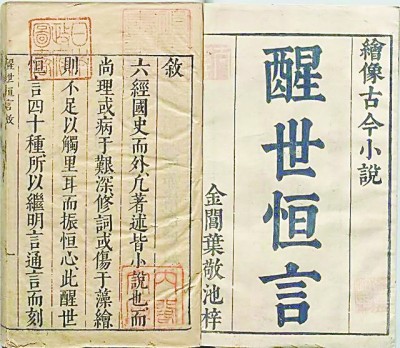 繪像古今小說
醒世恒言
金閶葉敬池梓
敘
六經國史而外凢著述皆小說也而
尚理或病于艱深修詞或傷于藻繪
則不足以觸里耳而振恒心此醒世
恒言四十種所以繼明言通言而刻
醒世恒言敘
內閣